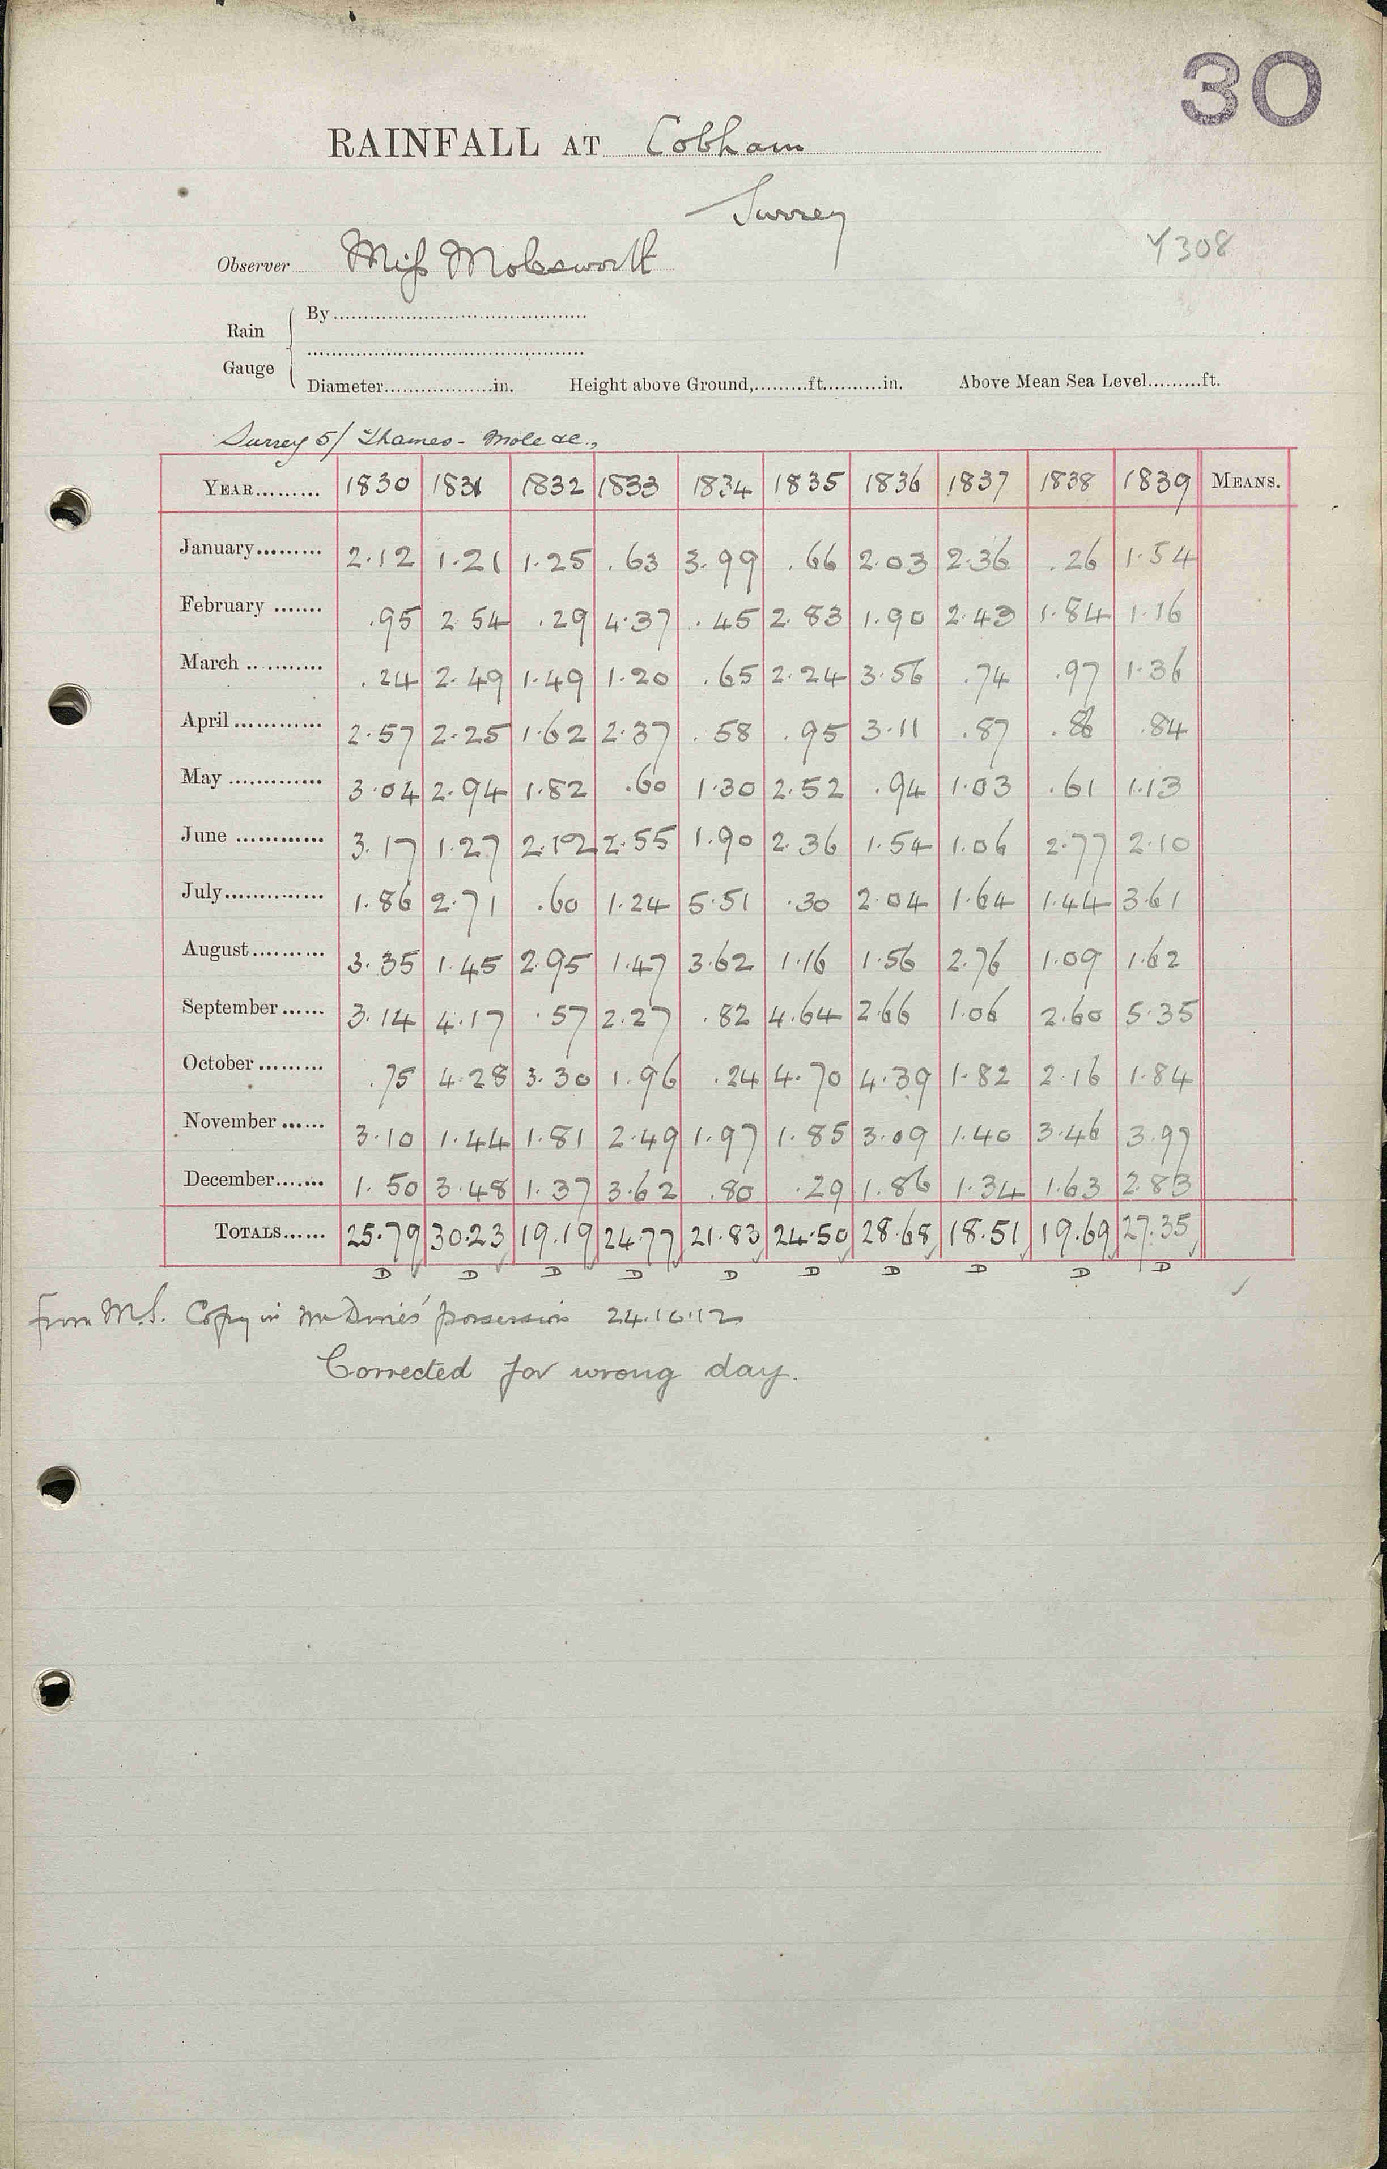 30
RAINFALL AT Cobham
Surrey
Observer Miss Molesworth
Y308
Rain Gauge
By
Diameter in. Height above Ground, ft. in. Above Mean Sea Level ft.
Surrey 5/ Thames - Mole &c.,
YEAR 1830 1831 1832 1833 1834 1835 1836 1837 1838 1839 MEANS.
January 2.12 1.21 1.25 .63 3.99 .66 2.03 2.36 .26 1.54
February .95 2.54 .29 4.37 .45 2.83 1.90 2.43 1.84 1.16
March .24 2.49 1.49 1.20 .65 2.24 3.56 .74 .97 1.36
April 2.57 2.25 1.62 2.37 .58 .95 3.11 .87 .86 .84
May 3.04 2.94 1.82 .60 1.30 2.52 .94 1.03 .61 1.13
June 3.17 1.27 2.12 2.55 1.90 2.36 1.54 1.06 2.77 2.10
July 1.86 2.71 .60 1.24 5.51 .30 2.04 1.64 1.44 3.61
August 3.35 1.45 2.95 1.47 3.62 1.16 1.56 2.76 1.09 1.62
September 3.14 4.17 .57 2.27 .82 4.64 2.66 1.06 2.60 5.35
October .75 4.28 3.30 1.96 .24 4.70 4.39 1.82 2.16 1.84
November 3.10 1.44 1.81 2.49 1.97 1.85 3.09 1.40 3.46 3.97
December 1.50 3.48 1.37 3.62 .80 .29 1.86 1.34 1.63 2.83
TOTALS 25.79 30.23 19.19 24.77 21.83 24.50 28.68 18.51 19.69 27.35
D D D D D D D D D D
from M.S. Copy in Mr Dines' possession 24.10.12
Corrected for wrong day.